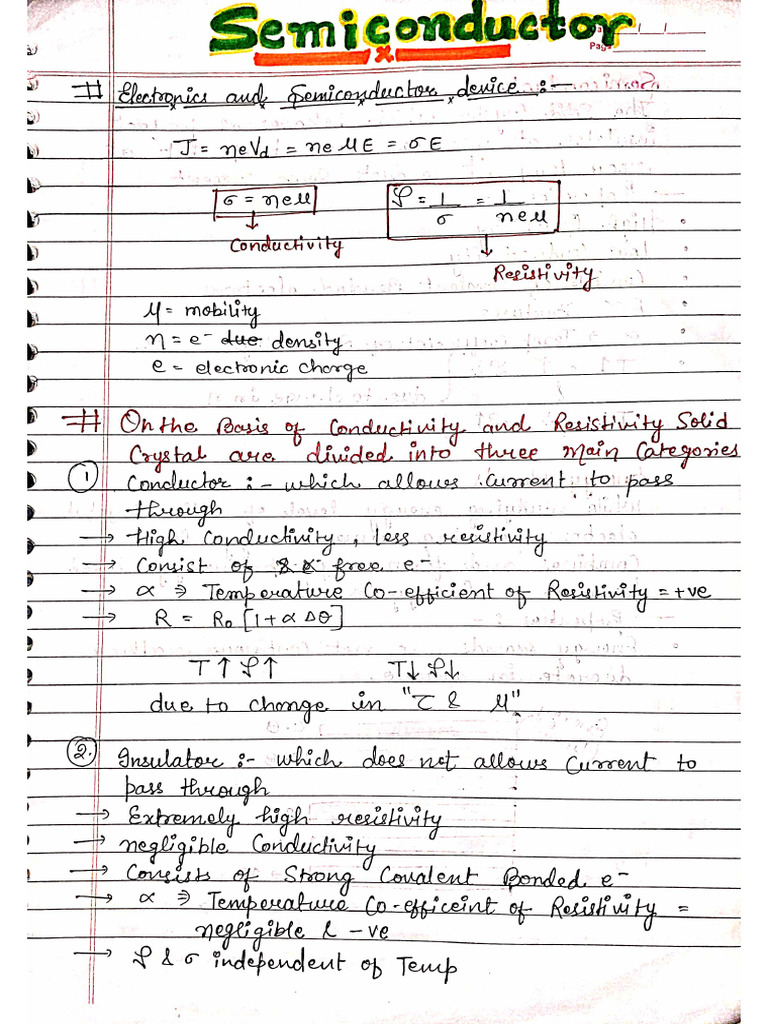 Semiconductor
Page
# Electronics and Semiconductor device :-
J = neVd = neμE = σE
σ = neμ
ρ = 1/σ = 1/neμ
Conductivity
Resistivity
μ = mobility
n = e⁻ density
e = electronic charge
# On the Basis of Conductivity and Resistivity Solid
Crystal are divided into three main Categories
① Conductor :- which allows current to pass
through
→ High Conductivity, less resistivity
→ Consist of free e⁻
→ α ⇒ Temperature Co-efficient of Resistivity = +ve
→ R = R₀ [1+α Δθ]
T↑ ρ↑ T↓ ρ↓
due to change in "τ & μ"
②. Insulator :- which does not allows Current to
pass through
→ Extremely high resistivity
→ negligible Conductivity
→ Consists of Strong Covalent Bonded e⁻
→ α ⇒ Temperature Co-efficeint of Resistivity =
negligible & -ve
→ ρ & σ independent of Temp